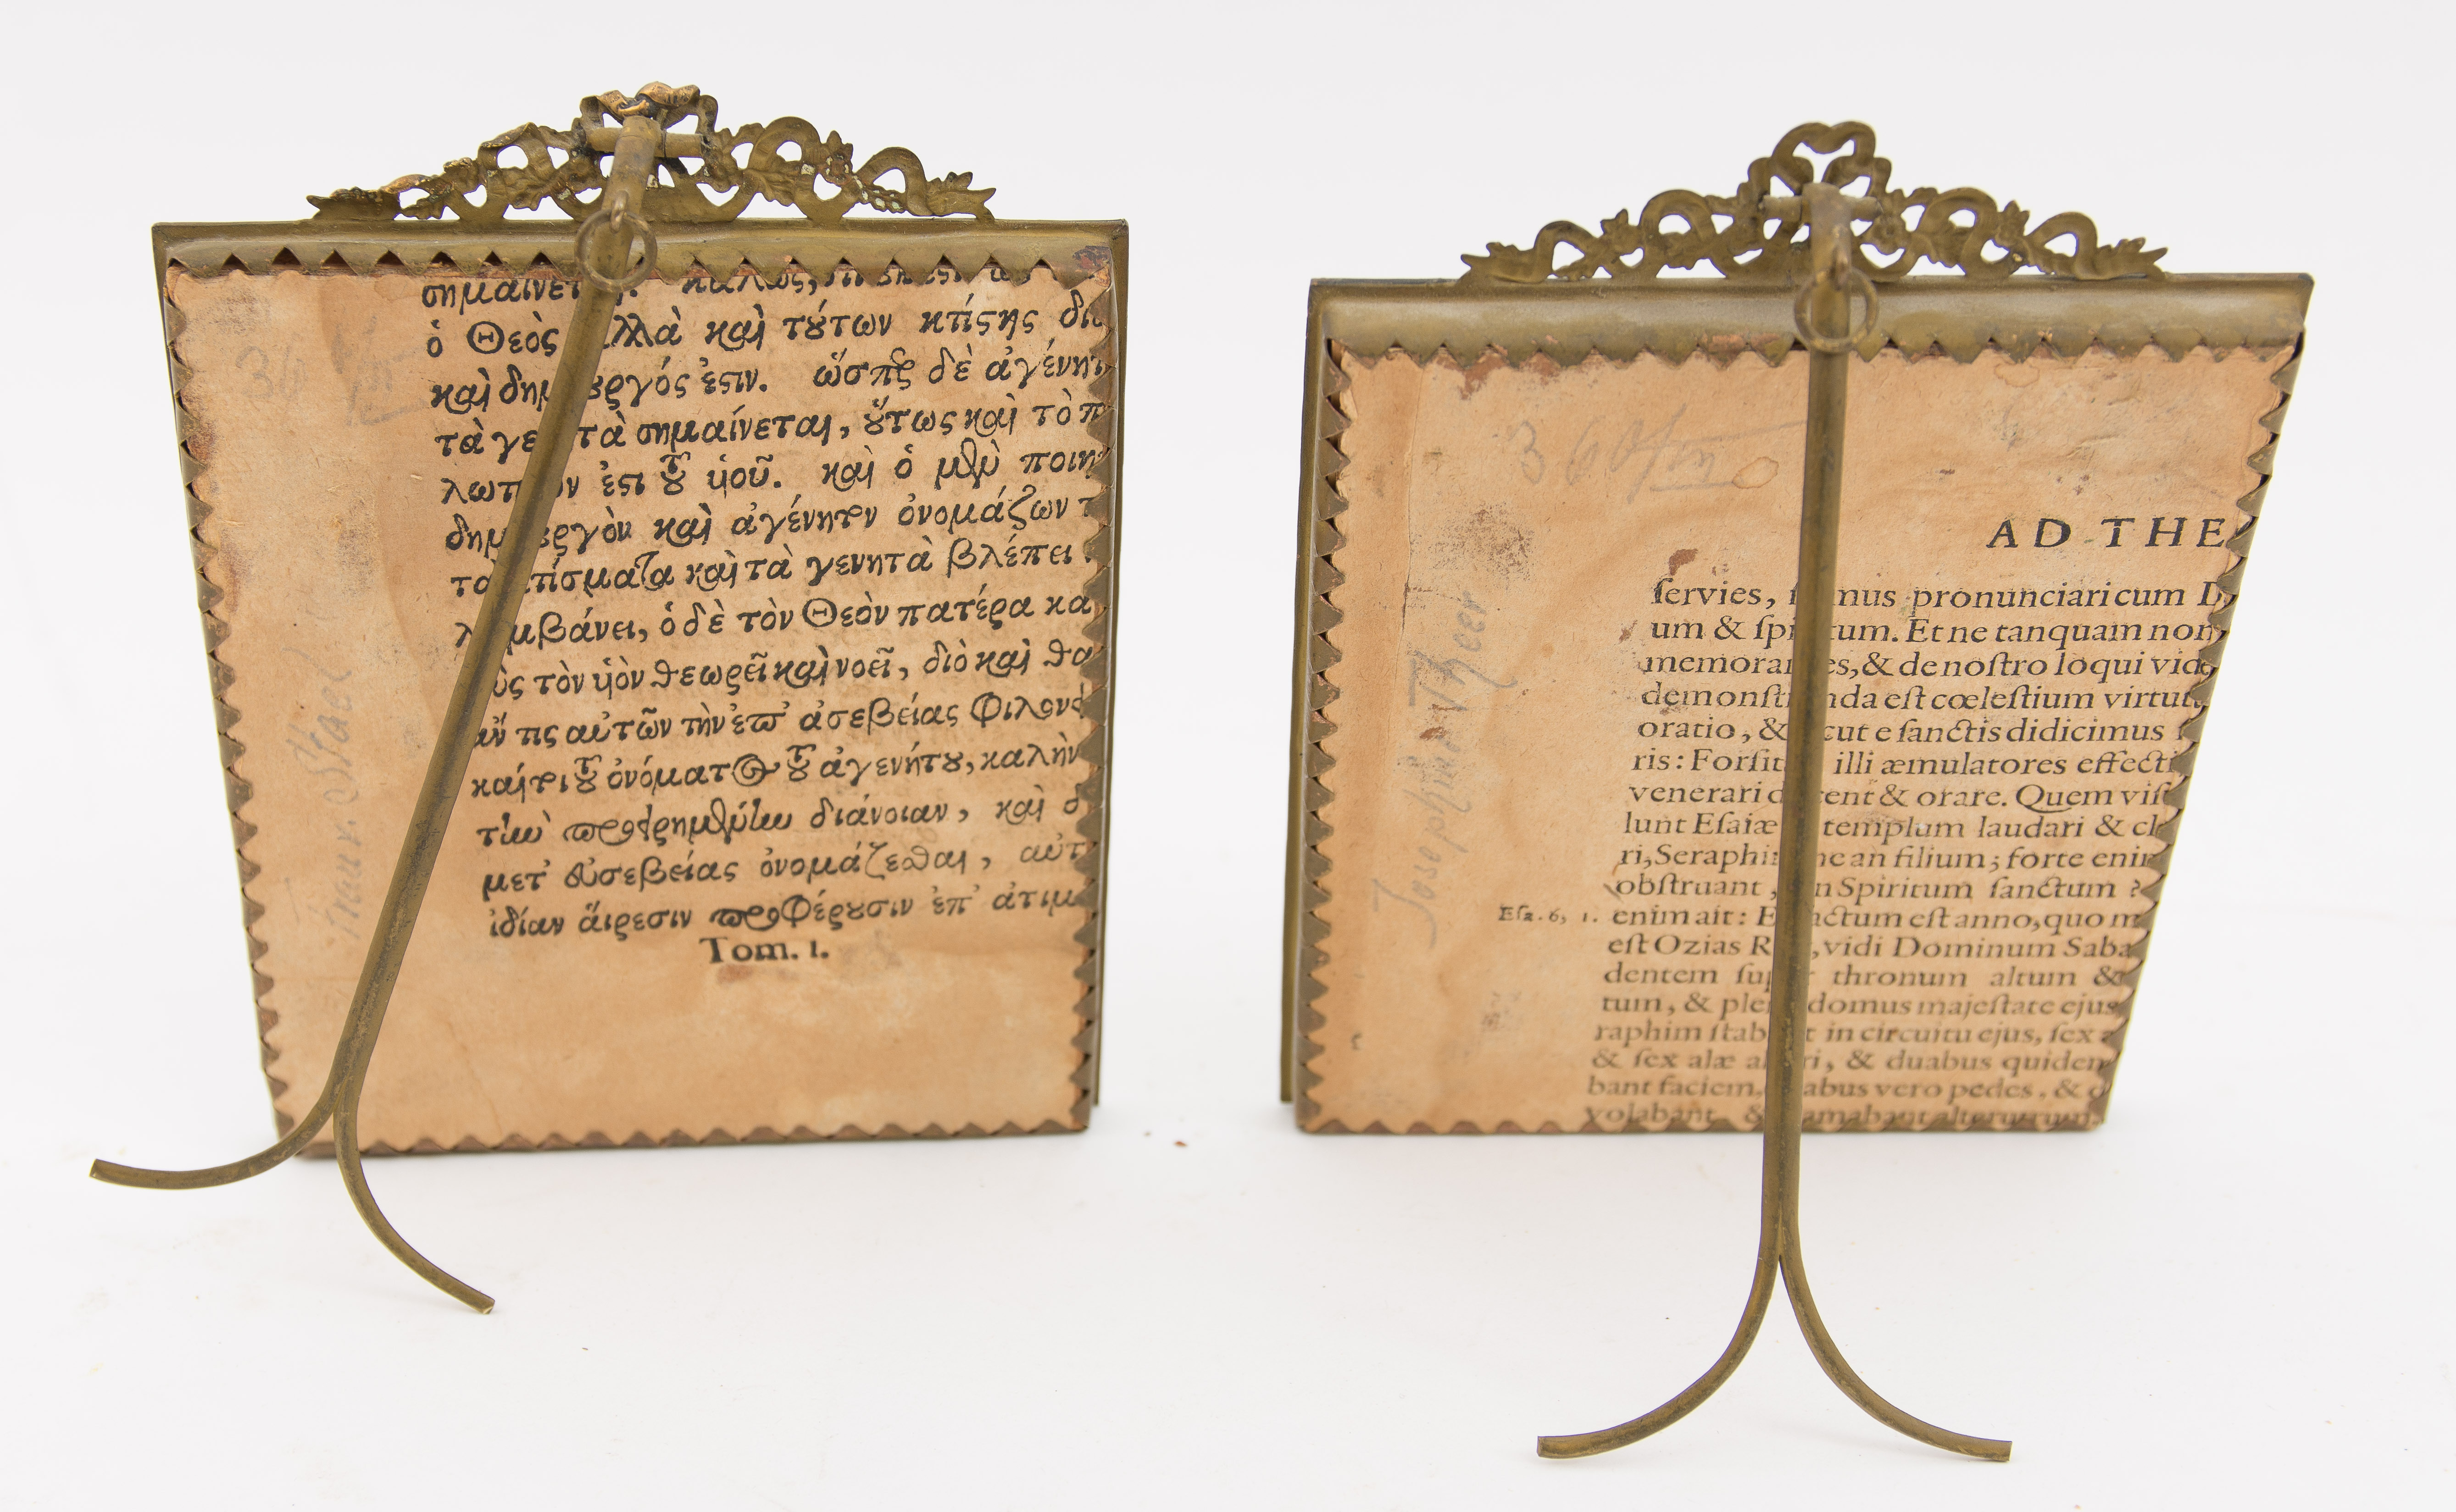 σημαίνετ
ὁ Θεὸς λλὰ καὶ τȣ́των κτίϛης
καὶ δημ ȣργός ἐϛιν. ὥσπερ δὲ ἀγένητ
τὰ γε τὰ σημαίνεται, ȣ́τως καὶ τὸ π
λωτ ν ἐϛι τȣ͂ υἱοῦ. καὶ ὁ μὲν ποιη
δημ ȣργὸν καὶ ἀγένητον ὀνομάζων τ
τὰ κτίσματα καὶ τὰ γενητὰ βλέπει
λ μβάνει, ὁ δὲ τὸν Θεὸν πατέρα κα
ὺς τὸν υἱὸν θεωρεῖ καὶ νοεῖ, διὸ καὶ θα
ἄν τις αὐτῶν τὴν ἐπ' ἀσεβείας φιλον
καίτοι τȣ͂ ὀνόματος τȣ͂ ἀγενήτȣ, καλὴν
τὴν προειρημένην διάνοιαν, καὶ δ
μετ' εὐσεβείας ὀνομάζεσθαι, αὐτ
ἰδίαν αἵρεσιν προφέρȣσιν ἐπ' ἀτιμ
Tom. 1.
360/
AD THE
ſervies, mus pronunciari cum D
um & ſpi tum. Et ne tanquam non
memoran es, & de noſtro loqui vid
demonſt nda eſt cœleſtium virtut
oratio, & cut e ſanctis didicimus
ris: Forſit illi æmulatores effecti
venerari cent & orare. Quem viſ
lunt Eſaiæ templum laudari & cl
ri, Seraphi ne an filium; forte enim
obſtruant, n Spiritum ſanctum ?
Eſa. 6, 1. enim ait: E ctum eſt anno, quo m
eſt Ozias R , vidi Dominum Saba
dentem ſup r thronum altum &
tum, & ple domus majeſtate ejus
raphim ſtab t in circuitu ejus, ſex
& ſex alæ al ri, & duabus quidem
bant faciem, abus vero pedes, &
volabant, & amabant alterutrum